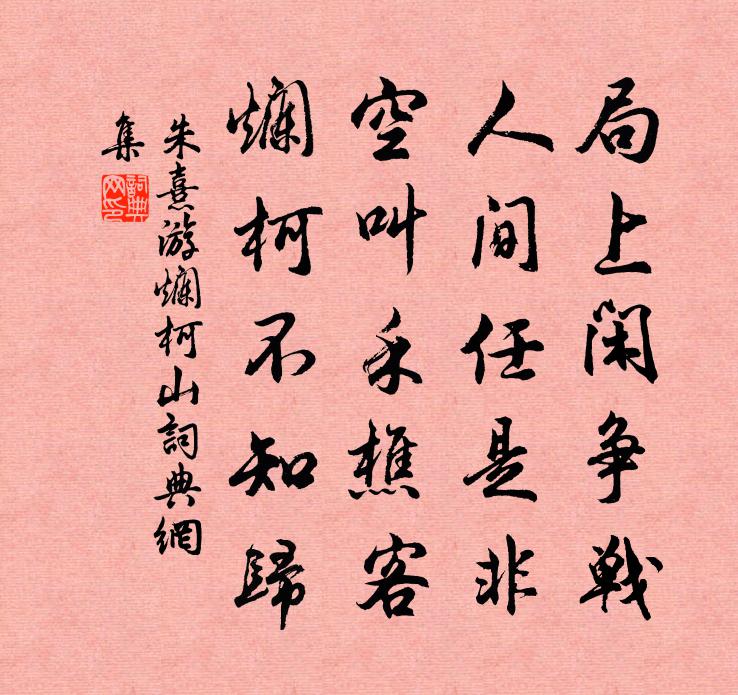 局上閑争戰
人间任是非
空叫采樵客
爛柯不知歸
朱熹游爛柯山詞典網
集
詞典网印